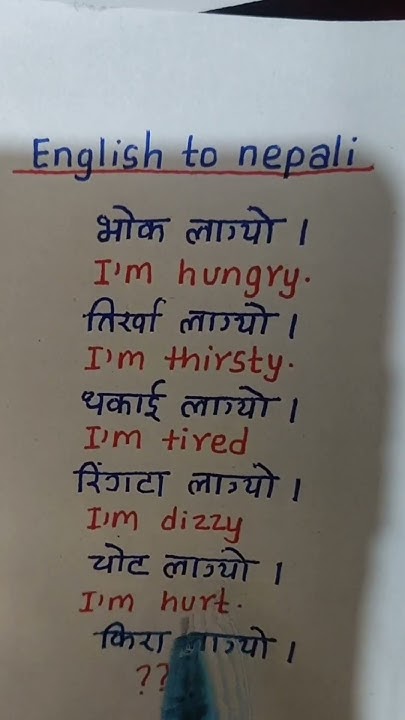 English to nepali
भोक लाग्यो ।
I'm hungry.
तिर्खा लाग्यो ।
I'm thirsty.
थकाई लाग्यो ।
I'm tired
रिंगटा लाग्यो ।
I'm dizzy
चोट लाग्यो ।
I'm hurt.
किरा लाग्यो ।
??